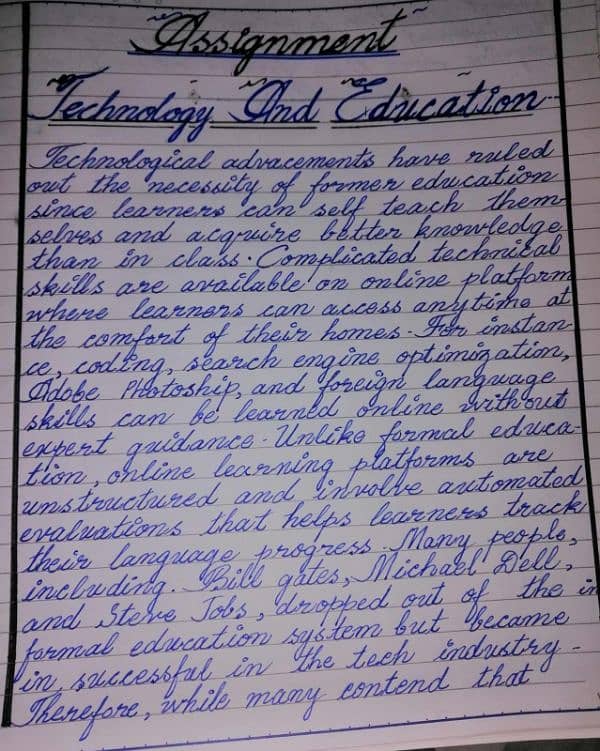 Assignment
Technology And Education
Technological advacements have ruled
out the necessity of former education
since learners can self teach them
selves and acquire better knowledge
than in class. Complicated technical
skills are available on online platform
where learners can access anytime at
the comfort of their homes. For instan-
ce, coding, search engine optimization,
Adobe Photoship, and foreign language
skills can be learned online without
expert guidance. Unlike formal educa-
tion, online learning platforms are
unstructured and involve automated
evaluations that helps learners track
their language progress. Many people,
including. Bill gates, Michael Dell,
and Steve Jobs, dropped out of the in
formal education system but became
in successful in the tech industry.
Therefore, while many contend that